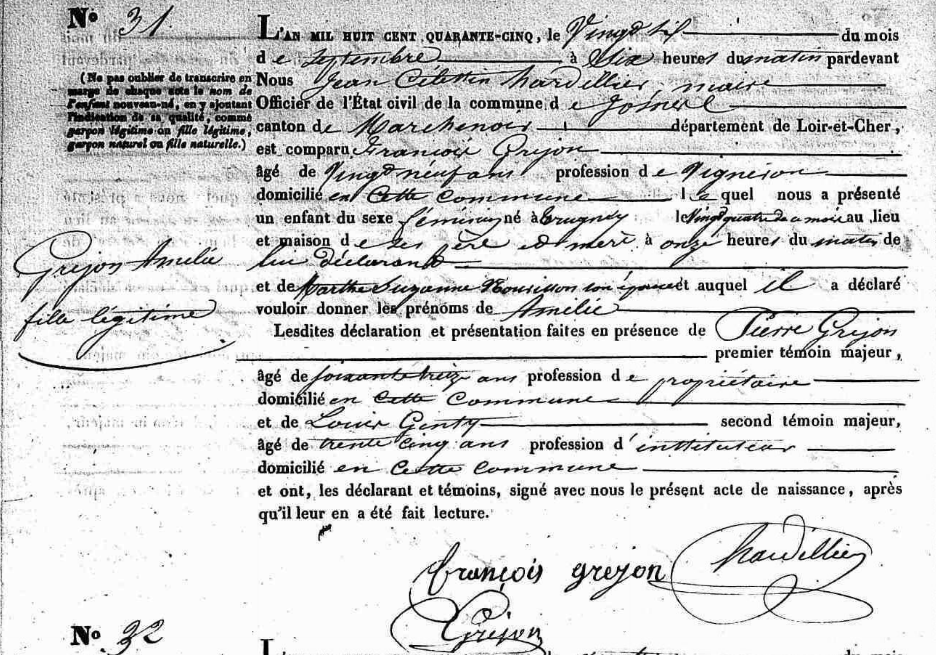 No 31
L'AN MIL HUIT CENT QUARANTE-CINQ, le Vingt six du mois
de Septembre à dix heures du matin pardevant
(Ne pas oublier de transcrire en
marge de chaque acte le nom de
l'enfant nouveau-né, en y ajoutant
l'indication de sa qualité, comme
garçon légitime ou fille légitime,
garçon naturel ou fille naturelle.)
Nous Jean Célestin hardillier, maire
Officier de l'État civil de la commune de Josnes
canton de Marchenoir département de Loir-et-Cher,
est comparu François Grejon
âgé de Vingt neuf ans profession de Vigneron
domicilié en Cette Commune le quel nous a présenté
un enfant du sexe féminin né à le Vingt quatre de ce mois au lieu
et maison de ses père et mère à onze heures du matin de
lui déclarant
Grejon Amélie
fille légitime
et de Marthe Suzanne son épouse et auquel il a déclaré
vouloir donner les prénoms de Amélie
Lesdites déclaration et présentation faites en présence de Pierre Grejon
premier témoin majeur,
âgé de soixante treize ans profession de propriétaire
domicilié en Cette Commune
et de Louis Genty second témoin majeur,
âgé de trente cinq ans profession d'instituteur
domicilié en Cette Commune
et ont, les déclarant et témoins, signé avec nous le présent acte de naissance, après
qu'il leur en a été fait lecture.
françois grejon hardillier
Grejon
No 32